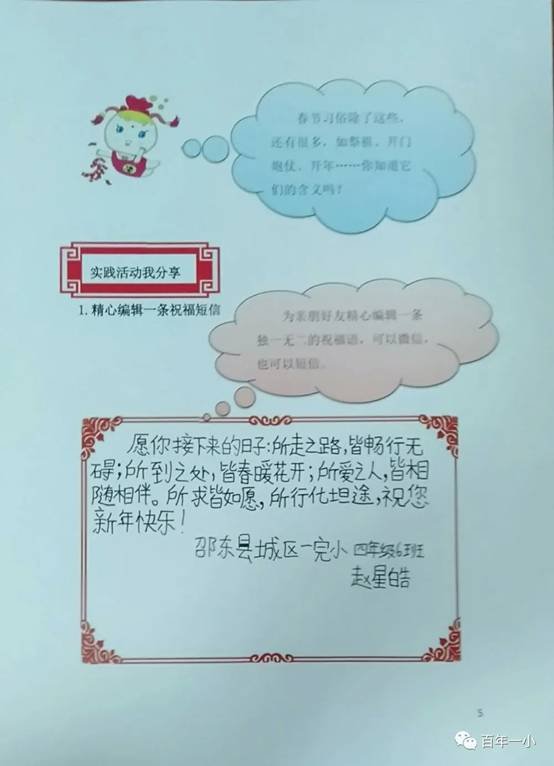 春节习俗除了这些，
还有很多，如祭祖、开门
炮仗、开年……你知道它
们的含义吗？
实践活动我分享
1.精心编辑一条祝福短信
为亲朋好友精心编辑一条
独一无二的祝福语，可以微信，
也可以短信。
愿你接下来的日子：所走之路，皆畅行无
碍；所到之处，皆春暖花开；所爱之人，皆相
随相伴。所求皆如愿，所行化坦途，祝您
新年快乐！
邵东县城区一完小 四年级6班
赵星皓
5
百年一小